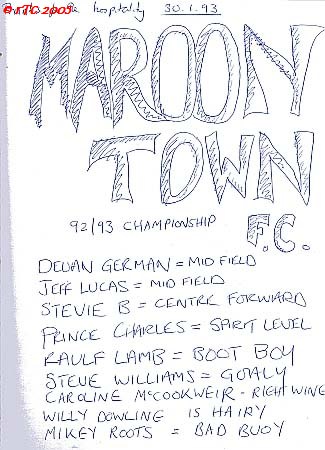 © TC 2009
hospitality 30.1.93
MAROON
TOWN
F.C.
92/93 CHAMPIONSHIP
DEUAN GERMAN = MID FIELD
JEFF LUCAS = MID FIELD
STEVIE B = CENTRE FORWARD
PRINCE CHARLES = SPIRIT LEVEL
RAULF LAMB = BOOT BOY
STEVE WILLIAMS = GOALY
CAROLINE McCOOKWEIR - RIGHT WING
WILLY DOWLING IS HAIRY
MIKEY ROOTS = BAD BUOY